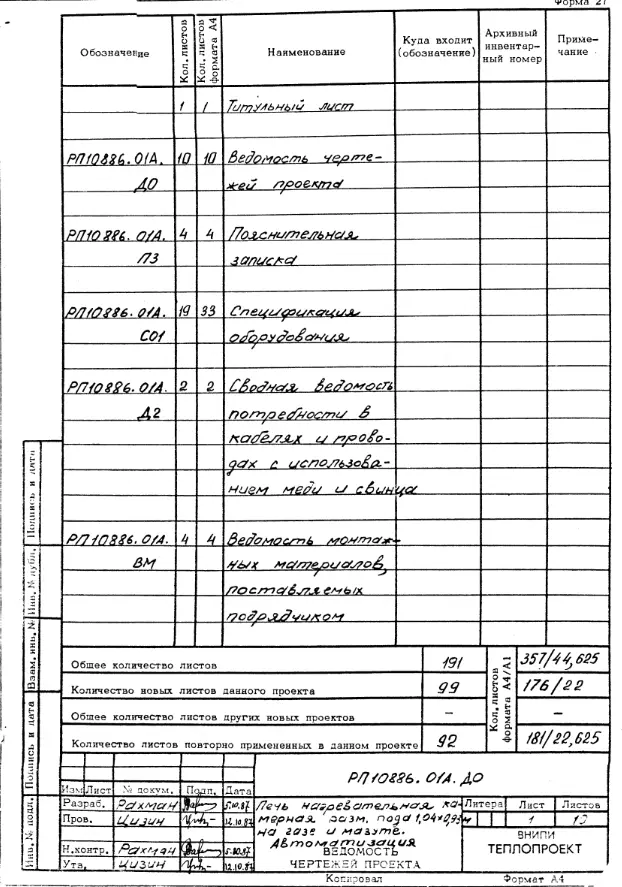 Форма 21
Обозначение Кол. листов Кол. листов формата А4 Наименование Куда входит (обозначение) Архивный инвентарный номер Примечание
1 1 Титульный лист
РП10886.01А. 10 10 Ведомость черте-
ДО жей проекта
РП10886.01А. 4 4 Пояснительная
ПЗ записка
РП10886.01А. 19 33 Спецификация
СО1 оборудования
РП10886.01А. 2 2 Сводная ведомость
Д2 потребности в
кабелях и прово-
дах с использова-
нием меди и свинца
РП10886.01А. 4 4 Ведомость монтаж-
ВМ ных материалов,
поставляемых
подрядчиком
Общее количество листов 191 Кол. листов формата А4/А1 357/44,625
Количество новых листов данного проекта 99 176/22
Общее количество листов других новых проектов – –
Количество листов повторно примененных в данном проекте 92 181/22,625
РП10886.01А.ДО
Изм Лист № докум. Подп. Дата
Разраб. Рахман 5.10.87 Печь нагревательная ка- Литера Лист Листов
Пров. Цизин 12.10.87 мерная разм. пода 1,04×0,93м 1 10
на газе и мазуте. ВНИПИ
Автоматизация ТЕПЛОПРОЕКТ
Н.контр. Рахман 5.10.87 ВЕДОМОСТЬ
Утв. Цизин 12.10.87 ЧЕРТЕЖЕЙ ПРОЕКТА
Копировал Формат А4
Инв. № подл. Подпись и дата Взам. инв. № Инв. № дубл. Подпись и дата